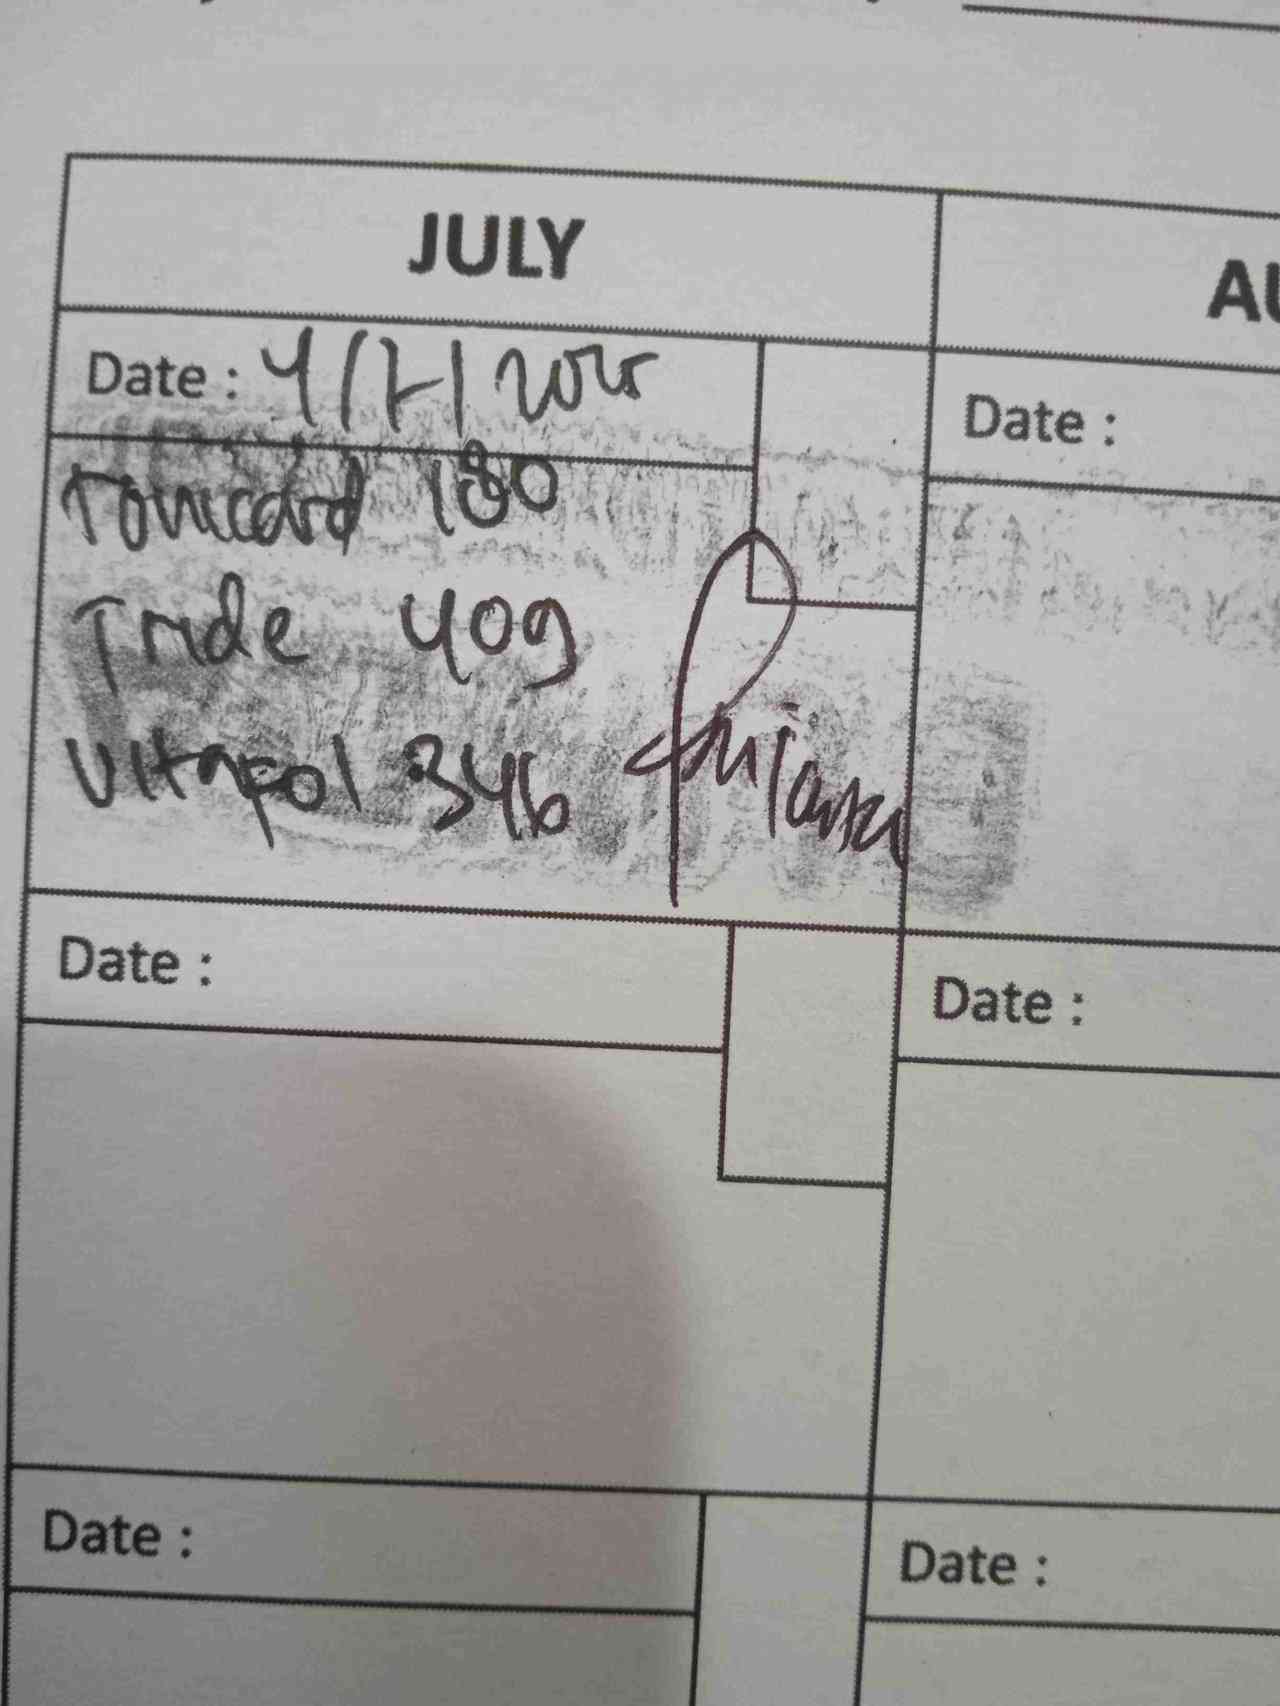 JULY
AU
Date : 4/7/2025
Date :
180
Tride 409
Vitapol 346
Date :
Date :
Date :
Date :